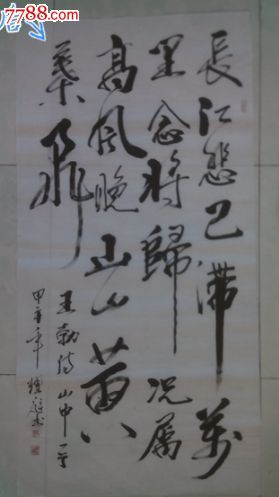 7788.com
長江悲已滞萬
里念将歸况属
高風晚山山黄
葉飛
王勃诗山中一首
甲午年